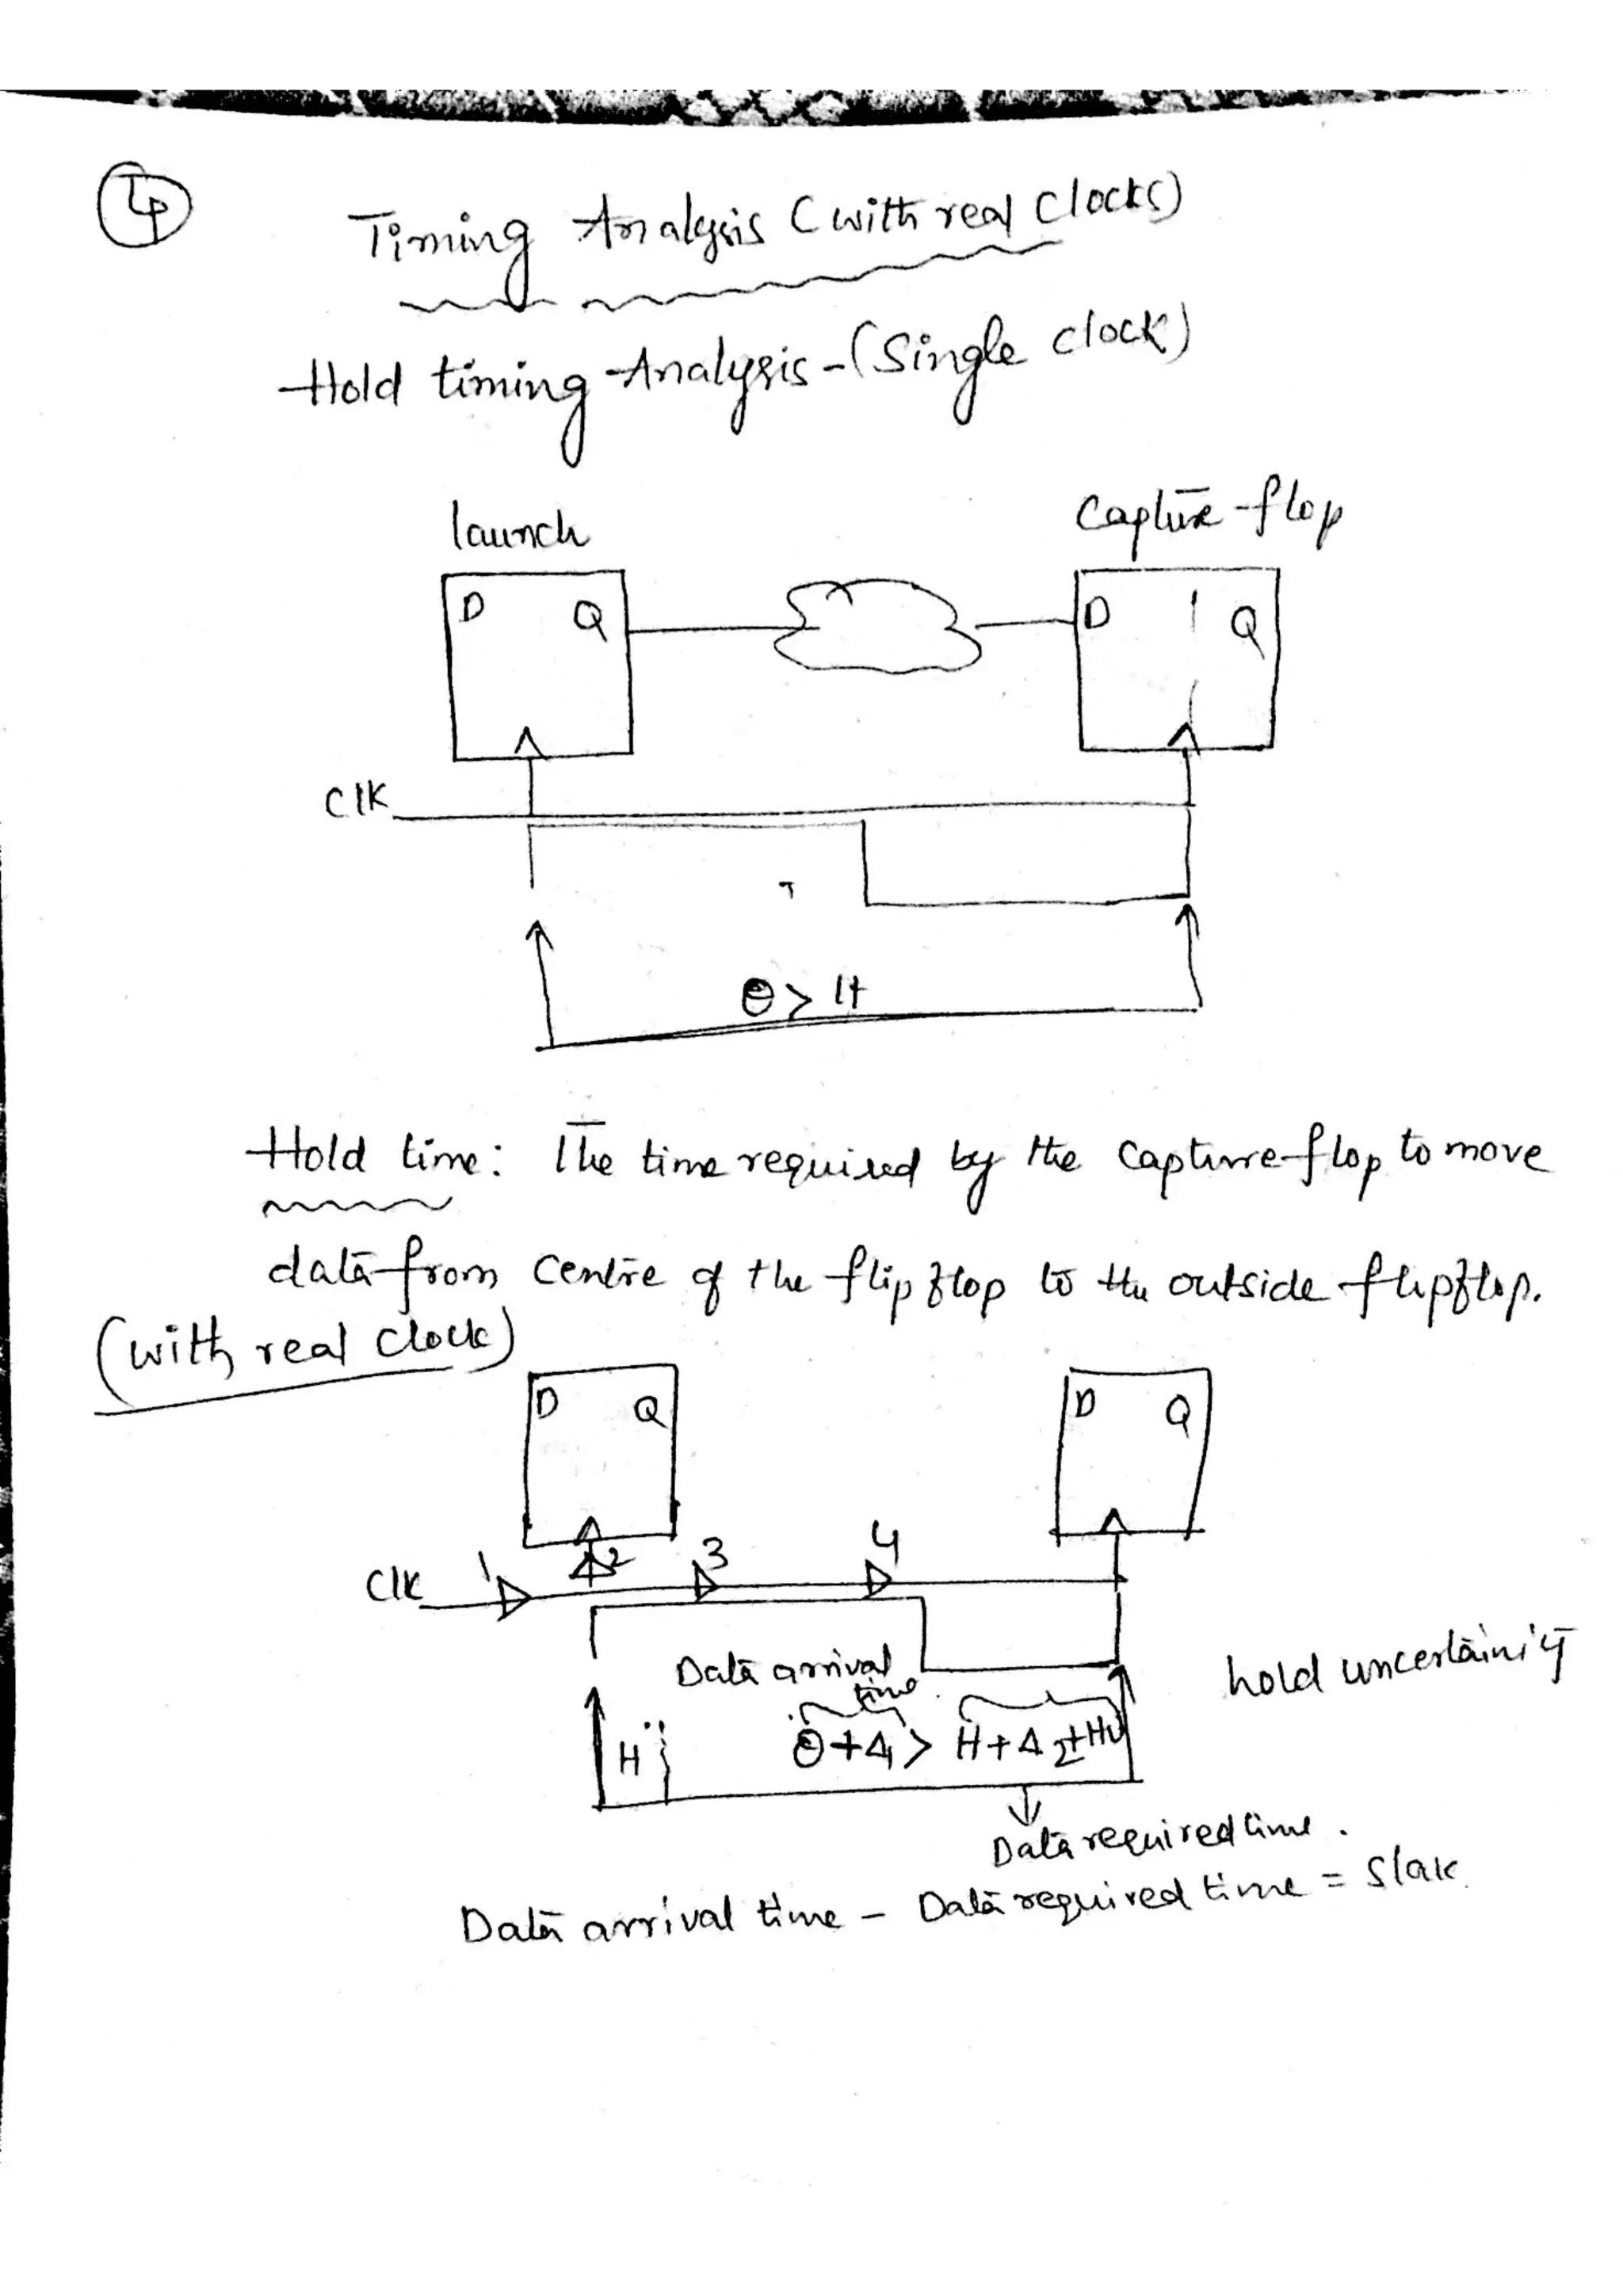 4
Timing Analysis (with real clocks)
Hold timing Analysis - (Single clock)
launch
Capture flop
D Q
D Q
Clk
T
θ > H
Hold time: The time required by the capture flop to move
data from centre of the flip flop to the outside flipflop.
(with real clock)
D Q
D Q
Clk 1 2 3 4
Data arrival
time
hold uncertainity
H θ+Δ1 > H+Δ2+HU
Data required time.
Data arrival time - Data required time = Slak.